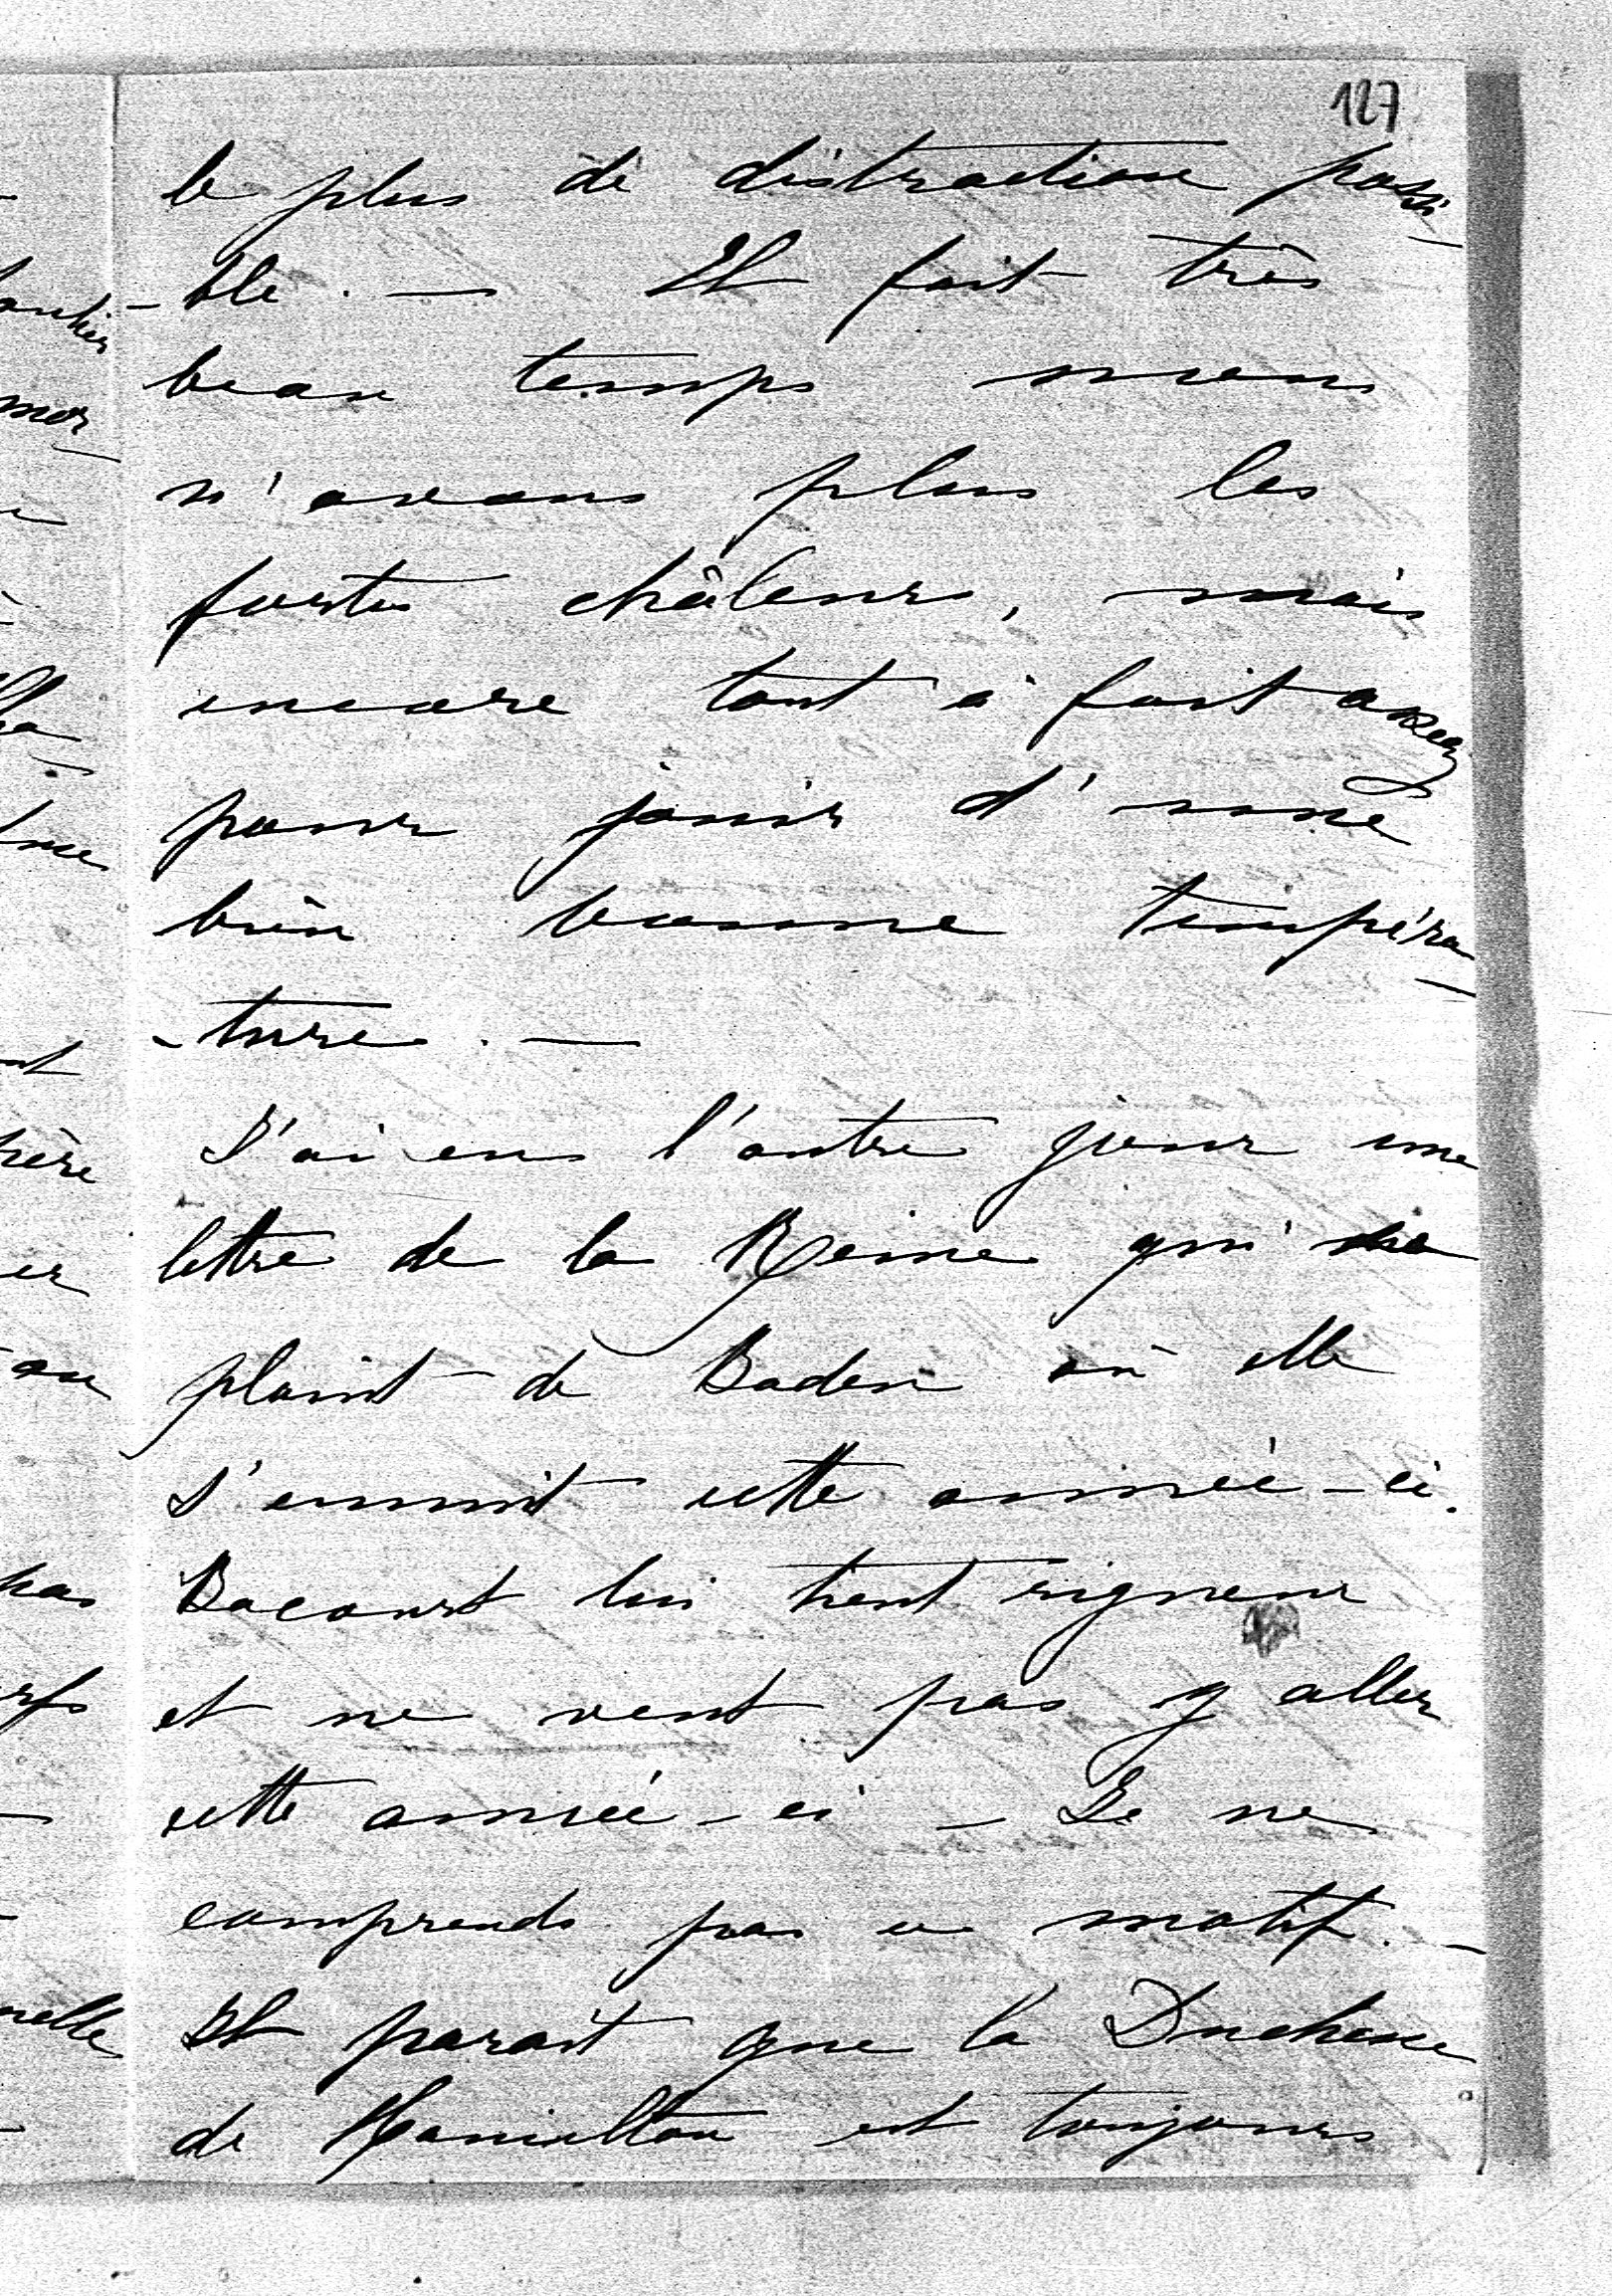 127
le plus de distraction possi-
-ble. — Il fait très
beau temps nous
n'avons plus les
fortes châleurs, mais
encore tout à fait assez
pour jouir d'une
bien bonne tempéra-
-ture. —
J'ai eu l'autre jour une
lettre de la Reine qui se
plaint de Baden où elle
s'ennuit cette année-ci.
Bacourt lui tient rigueur
et ne veut pas y aller
cette année-ci — Je ne
comprends pas ce motif. —
Il parait que la Duchesse
de Hamilton est toujours